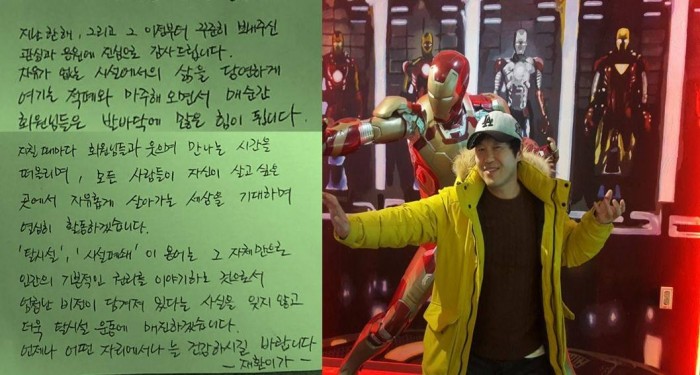 지난 한해, 그리고 그 이전부터 꾸준히 보내주신
관심과 응원에 진심으로 감사드립니다.
자유가 없는 시설에서의 삶을 당연하게
여기는 적폐와 마주해 오면서 매순간
회원님들은 반바닥에 많은 힘이 됩니다.
지칠 때마다 회원님들과 웃으며 만나는 시간을
떠올리며, 모든 사람들이 자신이 살고 싶은
곳에서 자유롭게 살아가는 세상을 기대하며
열심히 활동하겠습니다.
'탈시설', '시설폐쇄' 이 용어는 그 자체만으로
인간의 기본적인 권리를 이야기하는 것으로서
엄청난 비전이 담겨져 있다는 사실을 잊지 않고
더욱 탈시설 운동에 매진하겠습니다.
언제나 어떤 자리에서나 늘 건강하시길 바랍니다
- 재환이가 -
LA